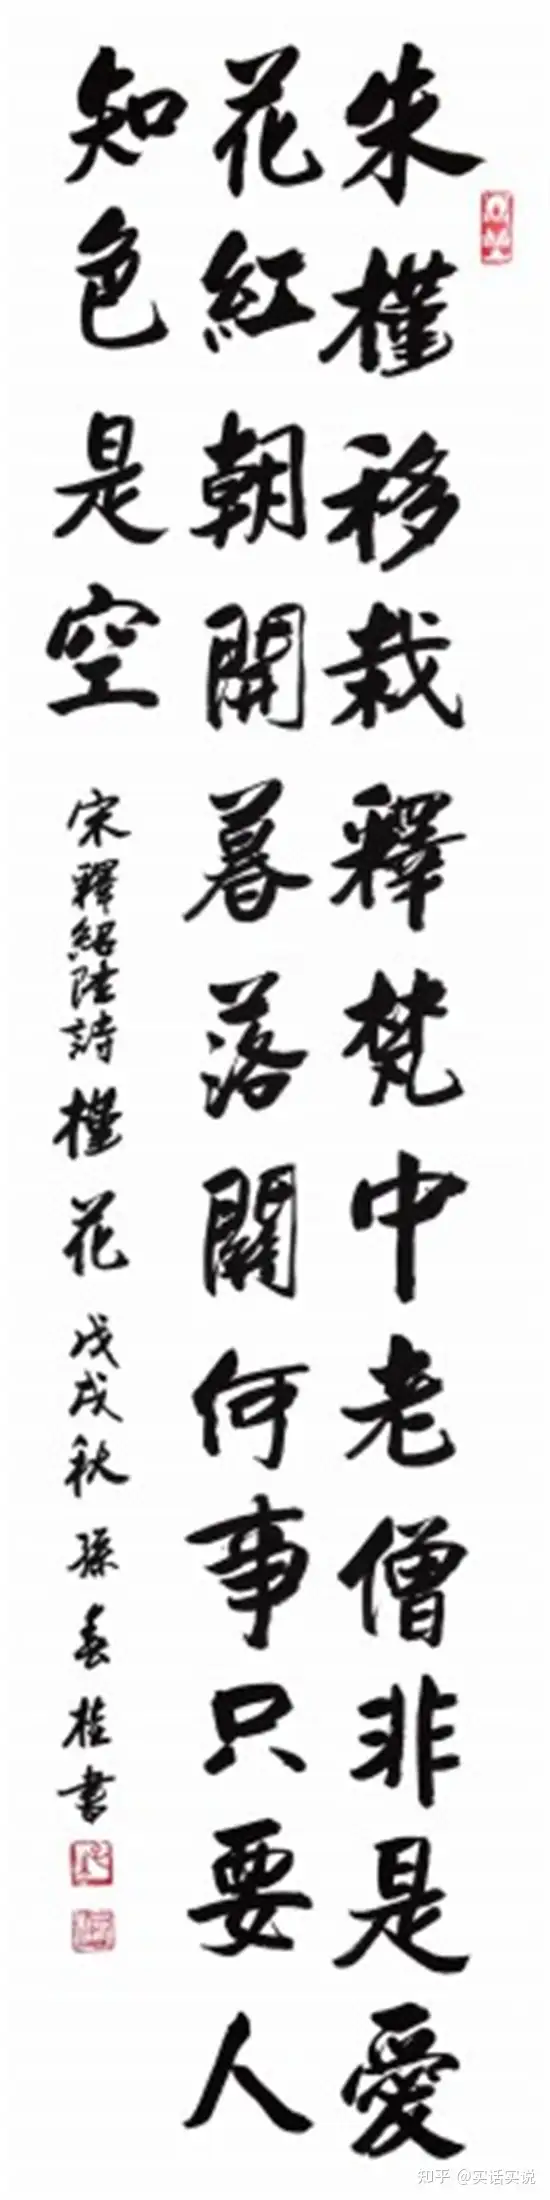 朱槿移栽釋梵中老僧非是愛
花紅朝開暮落關何事只要人
知色是空
宋釋紹隆詩槿花戊戌秋孫春桂書
知乎 @实话实说